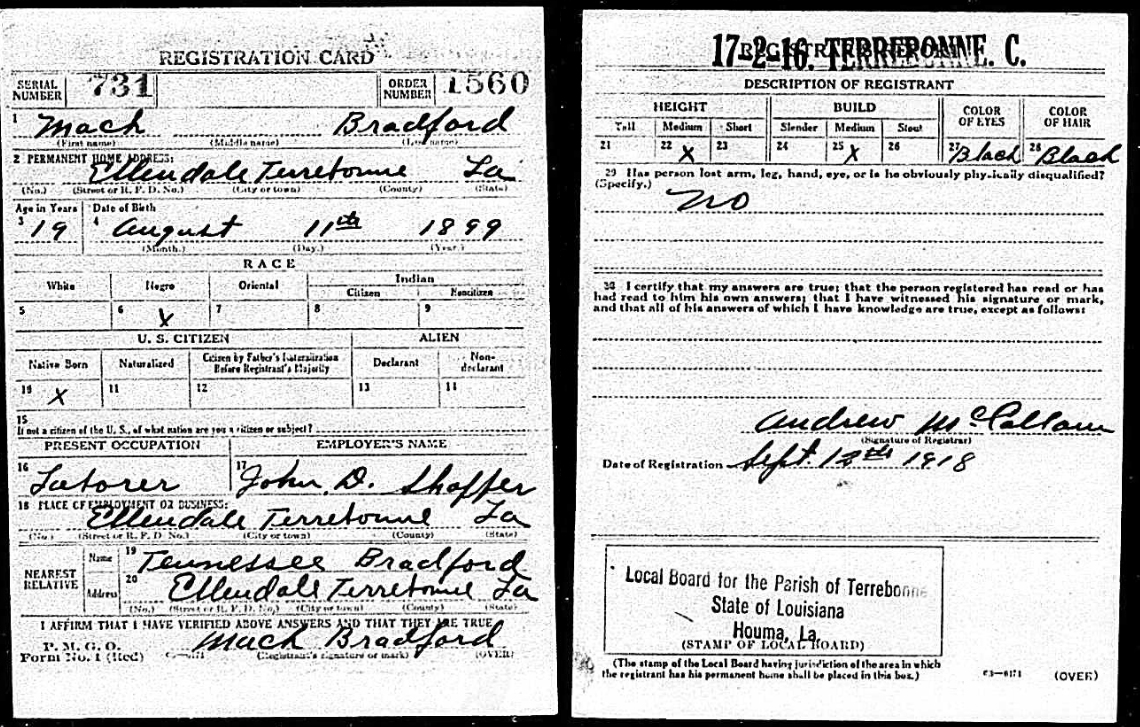 REGISTRATION CARD
SERIAL NUMBER 731 ORDER NUMBER 1560
1 Mack Bradford
(First name) (Middle name) (Last name)
2 PERMANENT HOME ADDRESS:
Ellendale Terrebonne La
(No.) (Street or R. F. D. No.) (City or town) (County) (State)
Age in Years Date of Birth
3 19 4 August 11th 1899
(Month.) (Day.) (Year.)
RACE
White Negro Oriental Indian
Citizen Noncitizen
5 6 X 7 8 9
U. S. CITIZEN ALIEN
Native Born Naturalized Citizen by Father's Naturalization Before Registrant's Majority Declarant Non-declarant
10 X 11 12 13 14
15
If not a citizen of the U. S., of what nation are you a citizen or subject?
PRESENT OCCUPATION EMPLOYER'S NAME
16 Laborer 17 John. D. Shaffer
18 PLACE OF EMPLOYMENT OR BUSINESS:
Ellendale Terrebonne La
(No.) (Street or R. F. D. No.) (City or town) (County) (State)
NEAREST RELATIVE Name 19 Tennessee Bradford
Address 20 Ellendale Terrebonne La
(No.) (Street or R. F. D. No.) (City or town) (County) (State)
I AFFIRM THAT I HAVE VERIFIED ABOVE ANSWERS AND THAT THEY ARE TRUE
P. M. G. O.
Form No. 1 (Red) Mack Bradford
(Registrant's signature or mark) (OVER)
REGISTRAR'S REPORT
17-2-16. TERREBONNE. C.
DESCRIPTION OF REGISTRANT
HEIGHT BUILD COLOR OF EYES COLOR OF HAIR
Tall Medium Short Slender Medium Stout
21 22 X 23 24 25 X 26 27 Black 28 Black
29 Has person lost arm, leg, hand, eye, or is he obviously physically disqualified?
(Specify.) No
30 I certify that my answers are true; that the person registered has read or has
had read to him his own answers; that I have witnessed his signature or mark,
and that all of his answers of which I have knowledge are true, except as follows:
Andrew McCollam
(Signature of Registrar)
Date of Registration Sept. 12th 1918
Local Board for the Parish of Terrebonne
State of Louisiana
Houma, La.
(STAMP OF LOCAL BOARD)
(The stamp of the Local Board having jurisdiction of the area in which
the registrant has his permanent home shall be placed in this box.)
03—6171 (OVER)